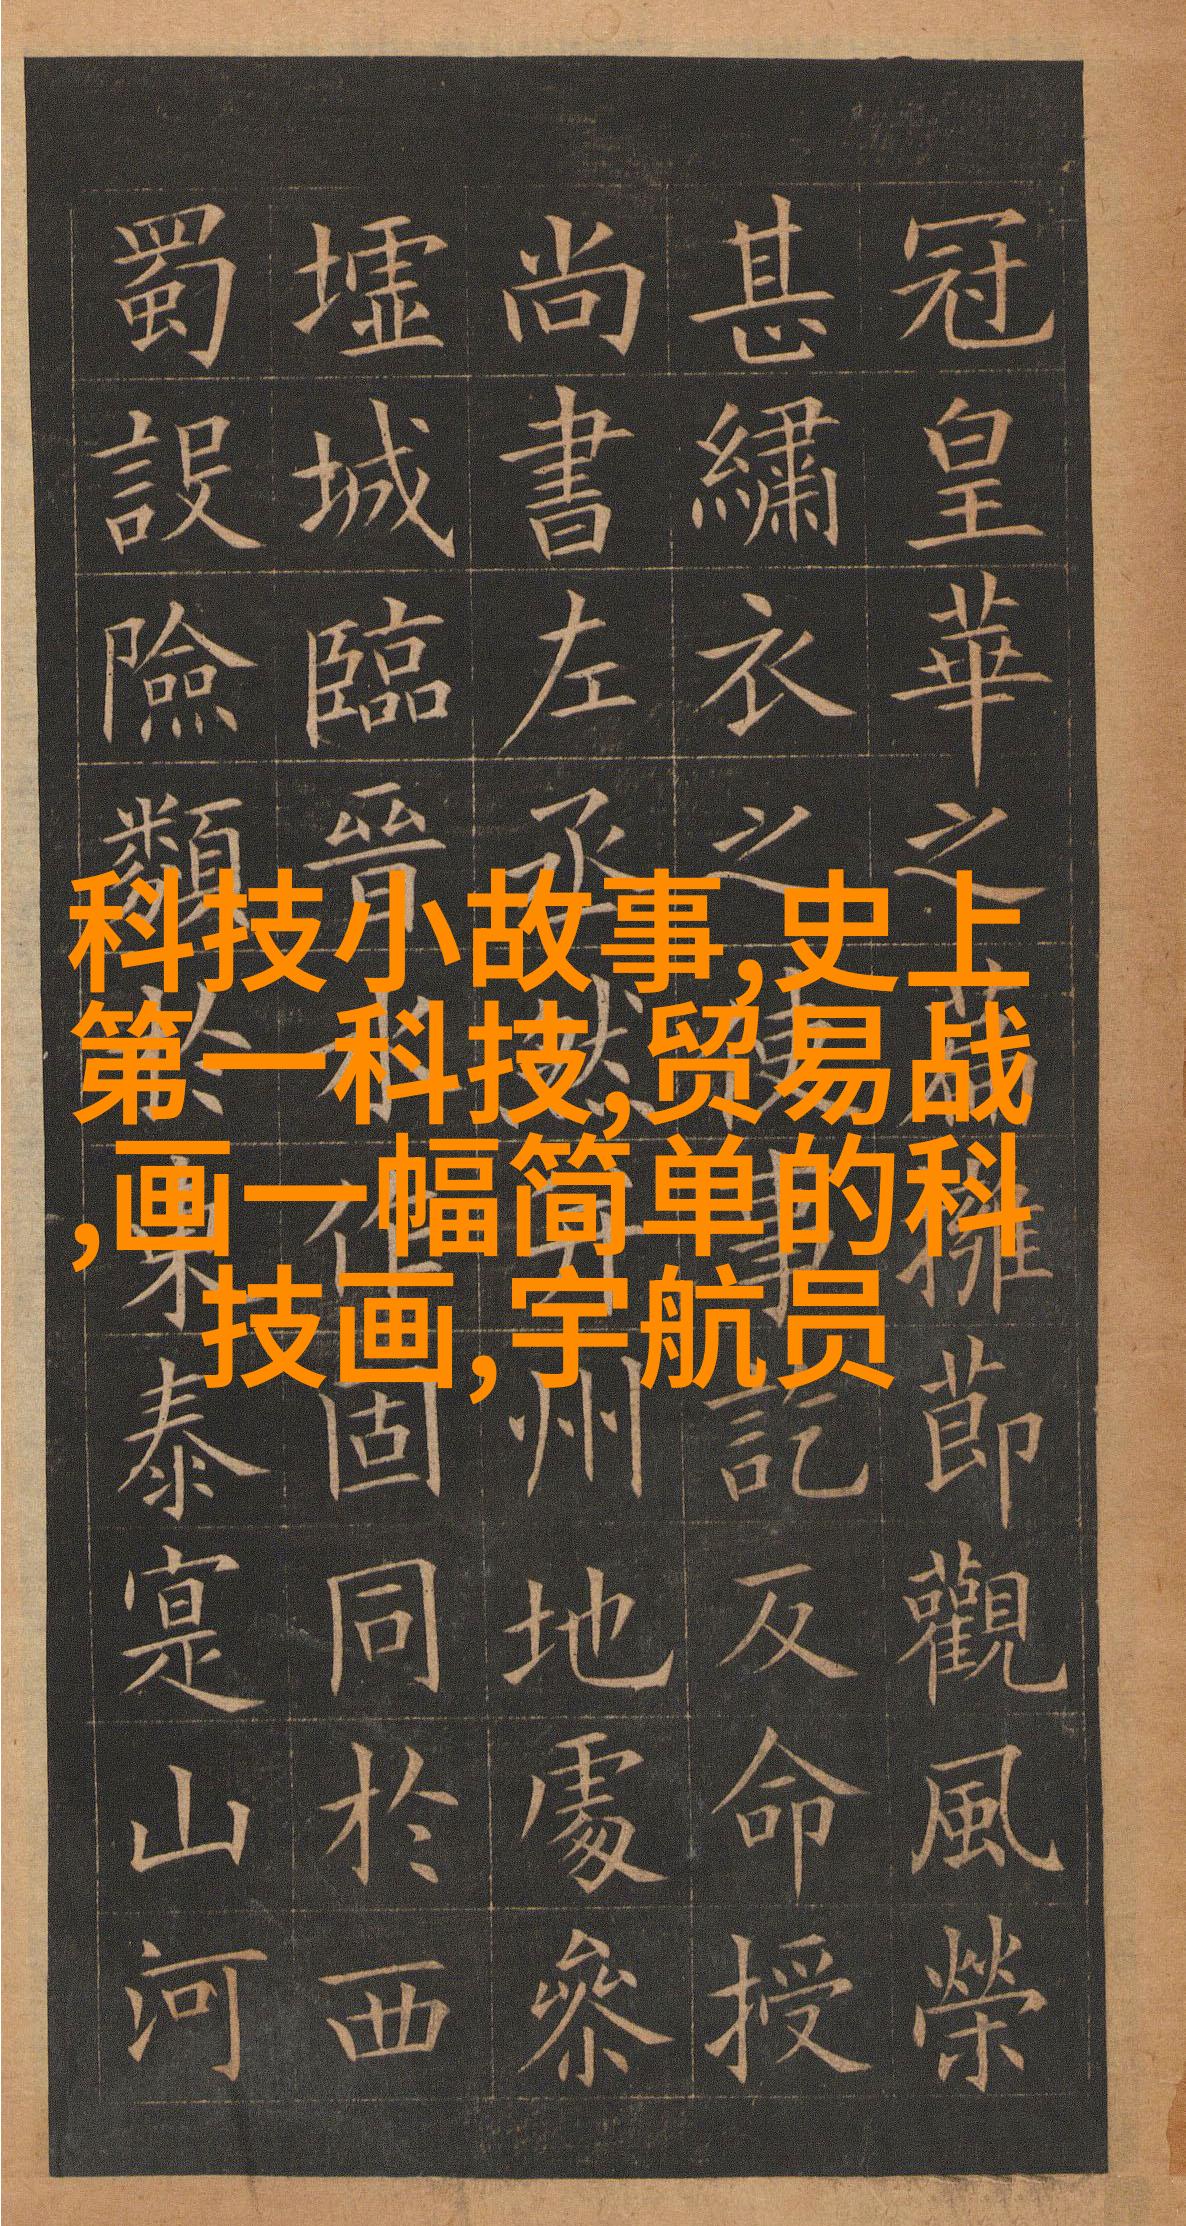 冠皇華之擁節觀風榮
甚繡衣之使事訖反命授
尚書左丞然州地處參
墟城臨晉水作固同於西
蜀設險類於東泰寔山河
科技小故事,史上
第一科技,贸易战
,画一幅简单的科
技画,宇航员